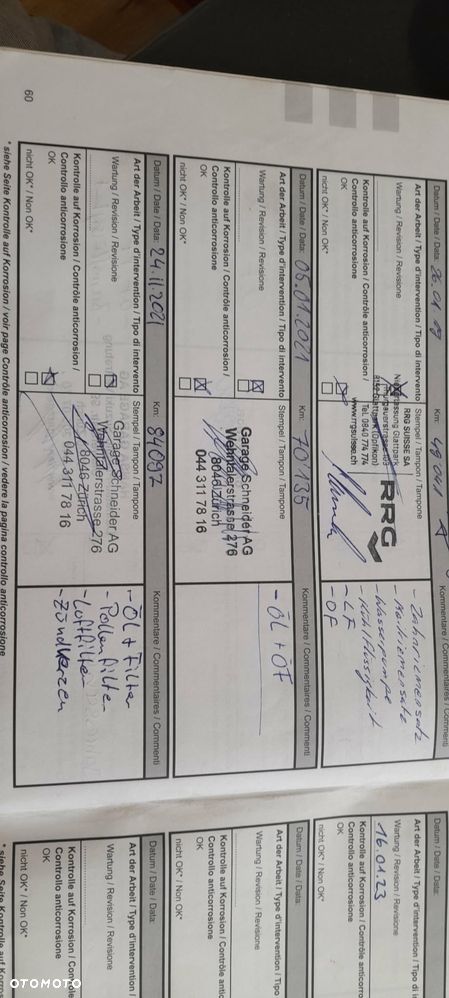 Datum / Date / Data:
Km:
Kommentare / Commentaires / Commenti
Art der Arbeit / Type d'intervention / Tipo di intervento
Stempel / Tampon / Tampone
Wartung / Revision / Revisione
Kontrolle auf Korrosion / Contrôle anticorrosion /
Controllo anticorrosione
OK
nicht OK* / Non OK*
RRG SUISSE SA
Niederlassung Glattpark
Thurgauerstrasse
Glattpark (Opfikon)
Tel. 0840 774 774
www.rrgsuisse.ch
RRG
- Zahnriemensatz
- Wasserpumpe
- Kühlflüssigkeit
- LF
- ÖF
Datum / Date / Data: 06.01.2021
Km: 704135
Kommentare / Commentaires / Commenti
Art der Arbeit / Type d'intervention / Tipo di intervento
Stempel / Tampon / Tampone
Wartung / Revision / Revisione
Kontrolle auf Korrosion / Contrôle anticorrosion /
Controllo anticorrosione
OK
nicht OK* / Non OK*
Garage Schneider AG
Wehntalerstrasse 276
8046 Zürich
044 311 78 16
- ÖL + ÖF
Datum / Date / Data: 24.11.2021
Km: 84092
Kommentare / Commentaires / Commenti
Art der Arbeit / Type d'intervention / Tipo di intervento
Stempel / Tampon / Tampone
Wartung / Revision / Revisione
Kontrolle auf Korrosion / Contrôle anticorrosion /
Controllo anticorrosione
OK
nicht OK* / Non OK*
Garage Schneider AG
Wehntalerstrasse 276
8046 Zürich
044 311 78 16
- ÖL + Filter
- Pollenfilter
- Luftfilter
- Zündkerzen
* siehe Seite Kontrolle auf Korrosion / voir page Contrôle anticorrosion / vedere la pagina controllo anticorrosione
60
Datum / Date / Data:
16.01.23
Art der Arbeit / Type d'intervention / Tipo di
Wartung / Revision / Revisione
Kontrolle auf Korrosion / Contrôle
Controllo anticorrosione
OK
nicht OK* / Non OK*
Datum / Date / Data:
Art der Arbeit / Type d'intervention / Tipo
Wartung / Revision / Revisione
Kontrolle auf Korrosion / Contrôle
Controllo anticorrosione
OK
nicht OK* / Non OK*
Datum / Date / Data:
Art der Arbeit / Type d'intervention / Tipo
Wartung / Revision / Revisione
Kontrolle auf Korrosion /
Controllo anticorrosione
OK
nicht OK* / Non OK*
* siehe Seite Kontrolle auf
OTOMOTO